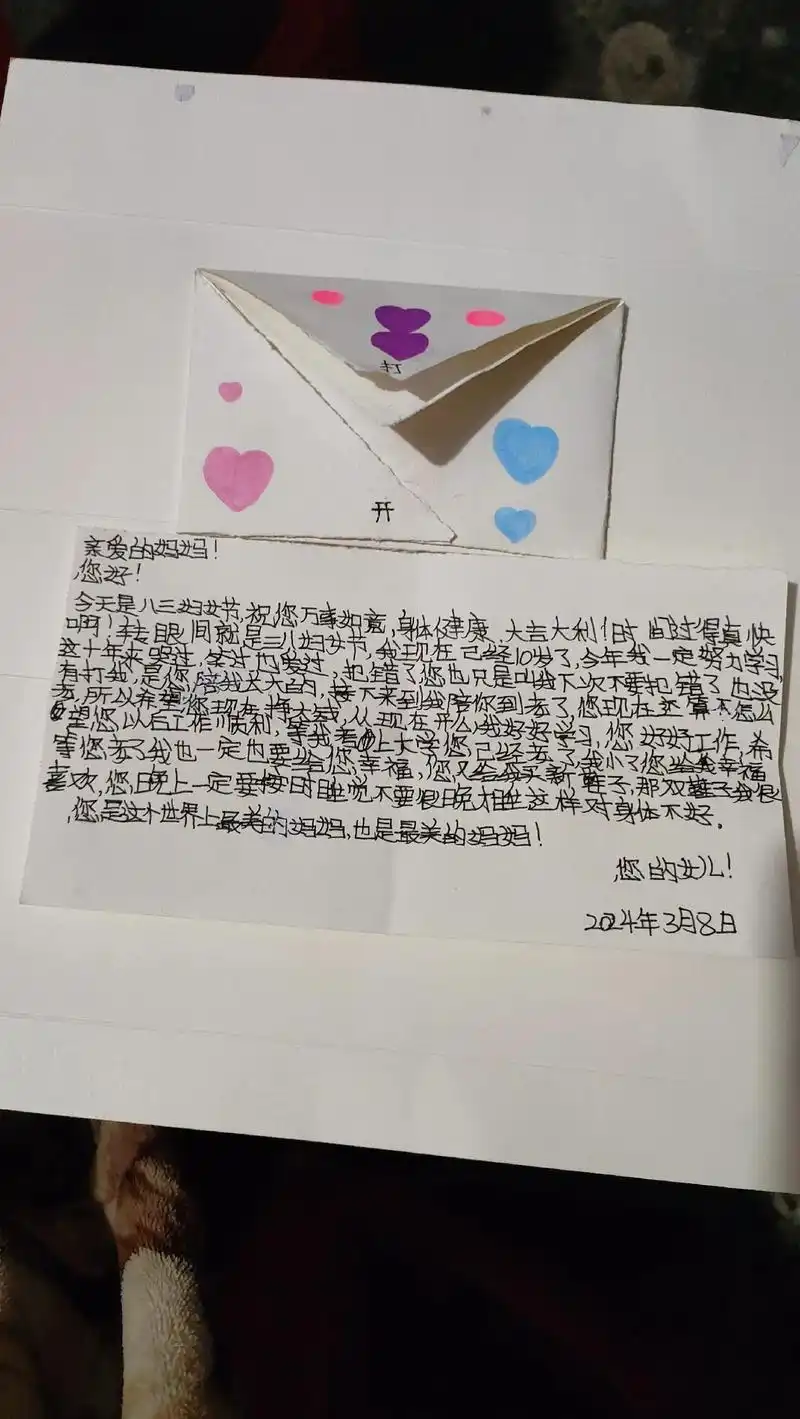 打
开
亲爱的妈妈!
您好!
今天是八三妇女节,祝您万事如意,身体健康,大吉大利!时间过得真快
啊!转眼间就是三八妇女节,我现在已经10岁了,今年我一定努力学习,
这十年来哭过,笑过也爱过,犯错了您也只是叫我下次不要犯错了也没
有打我,是您陪我长大的,接下来到我陪你到老了,您现在还算不怎么
老,所以希望您现在挣大钱,从现在开么我好好学习,您好好工作,希
望您以后工作顺利,等我考上大学您已经老了,我小了您给我幸福
等您老了我也一定也要给您幸福,您又给我买新鞋子,那双鞋子我很
喜欢,您晚上一定要按时睡觉不要很晚睡这样对身体不好。
您是这个世界上最美的妈妈,也是最美的妈妈!
您的女儿!
2024年3月8日